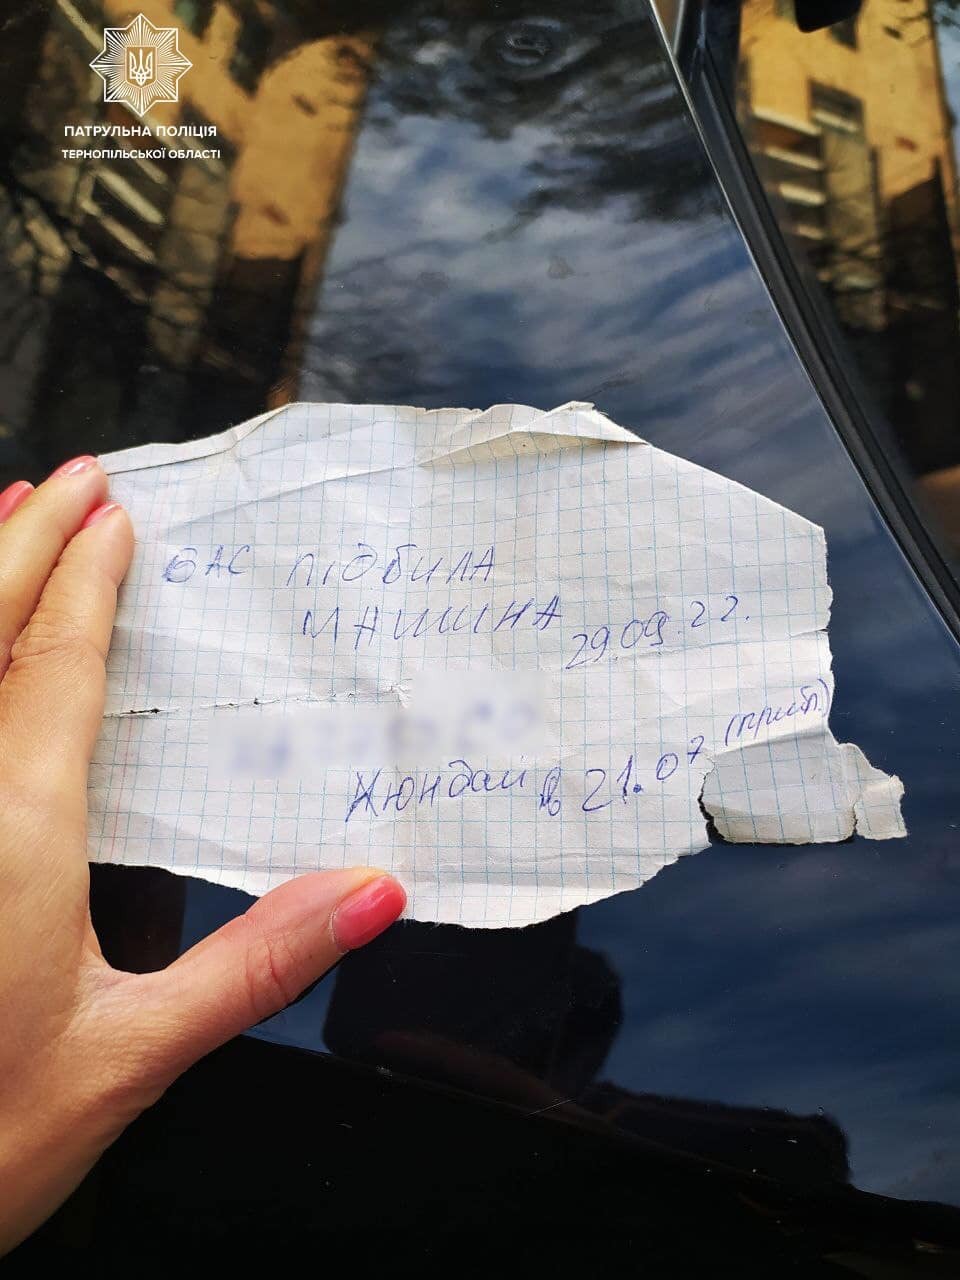 ПАТРУЛЬНА ПОЛІЦІЯ
ТЕРНОПІЛЬСЬКОЇ ОБЛАСТІ
ВАС ПІДБИЛА
МАШИНА 29.09.22.
Хюндай в 21.07 (прибл.)